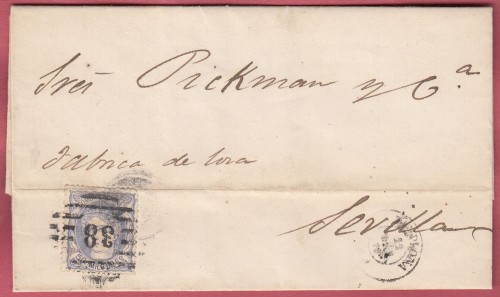 Sres Pickman y Cª
Fabrica de loza
Sevilla
38